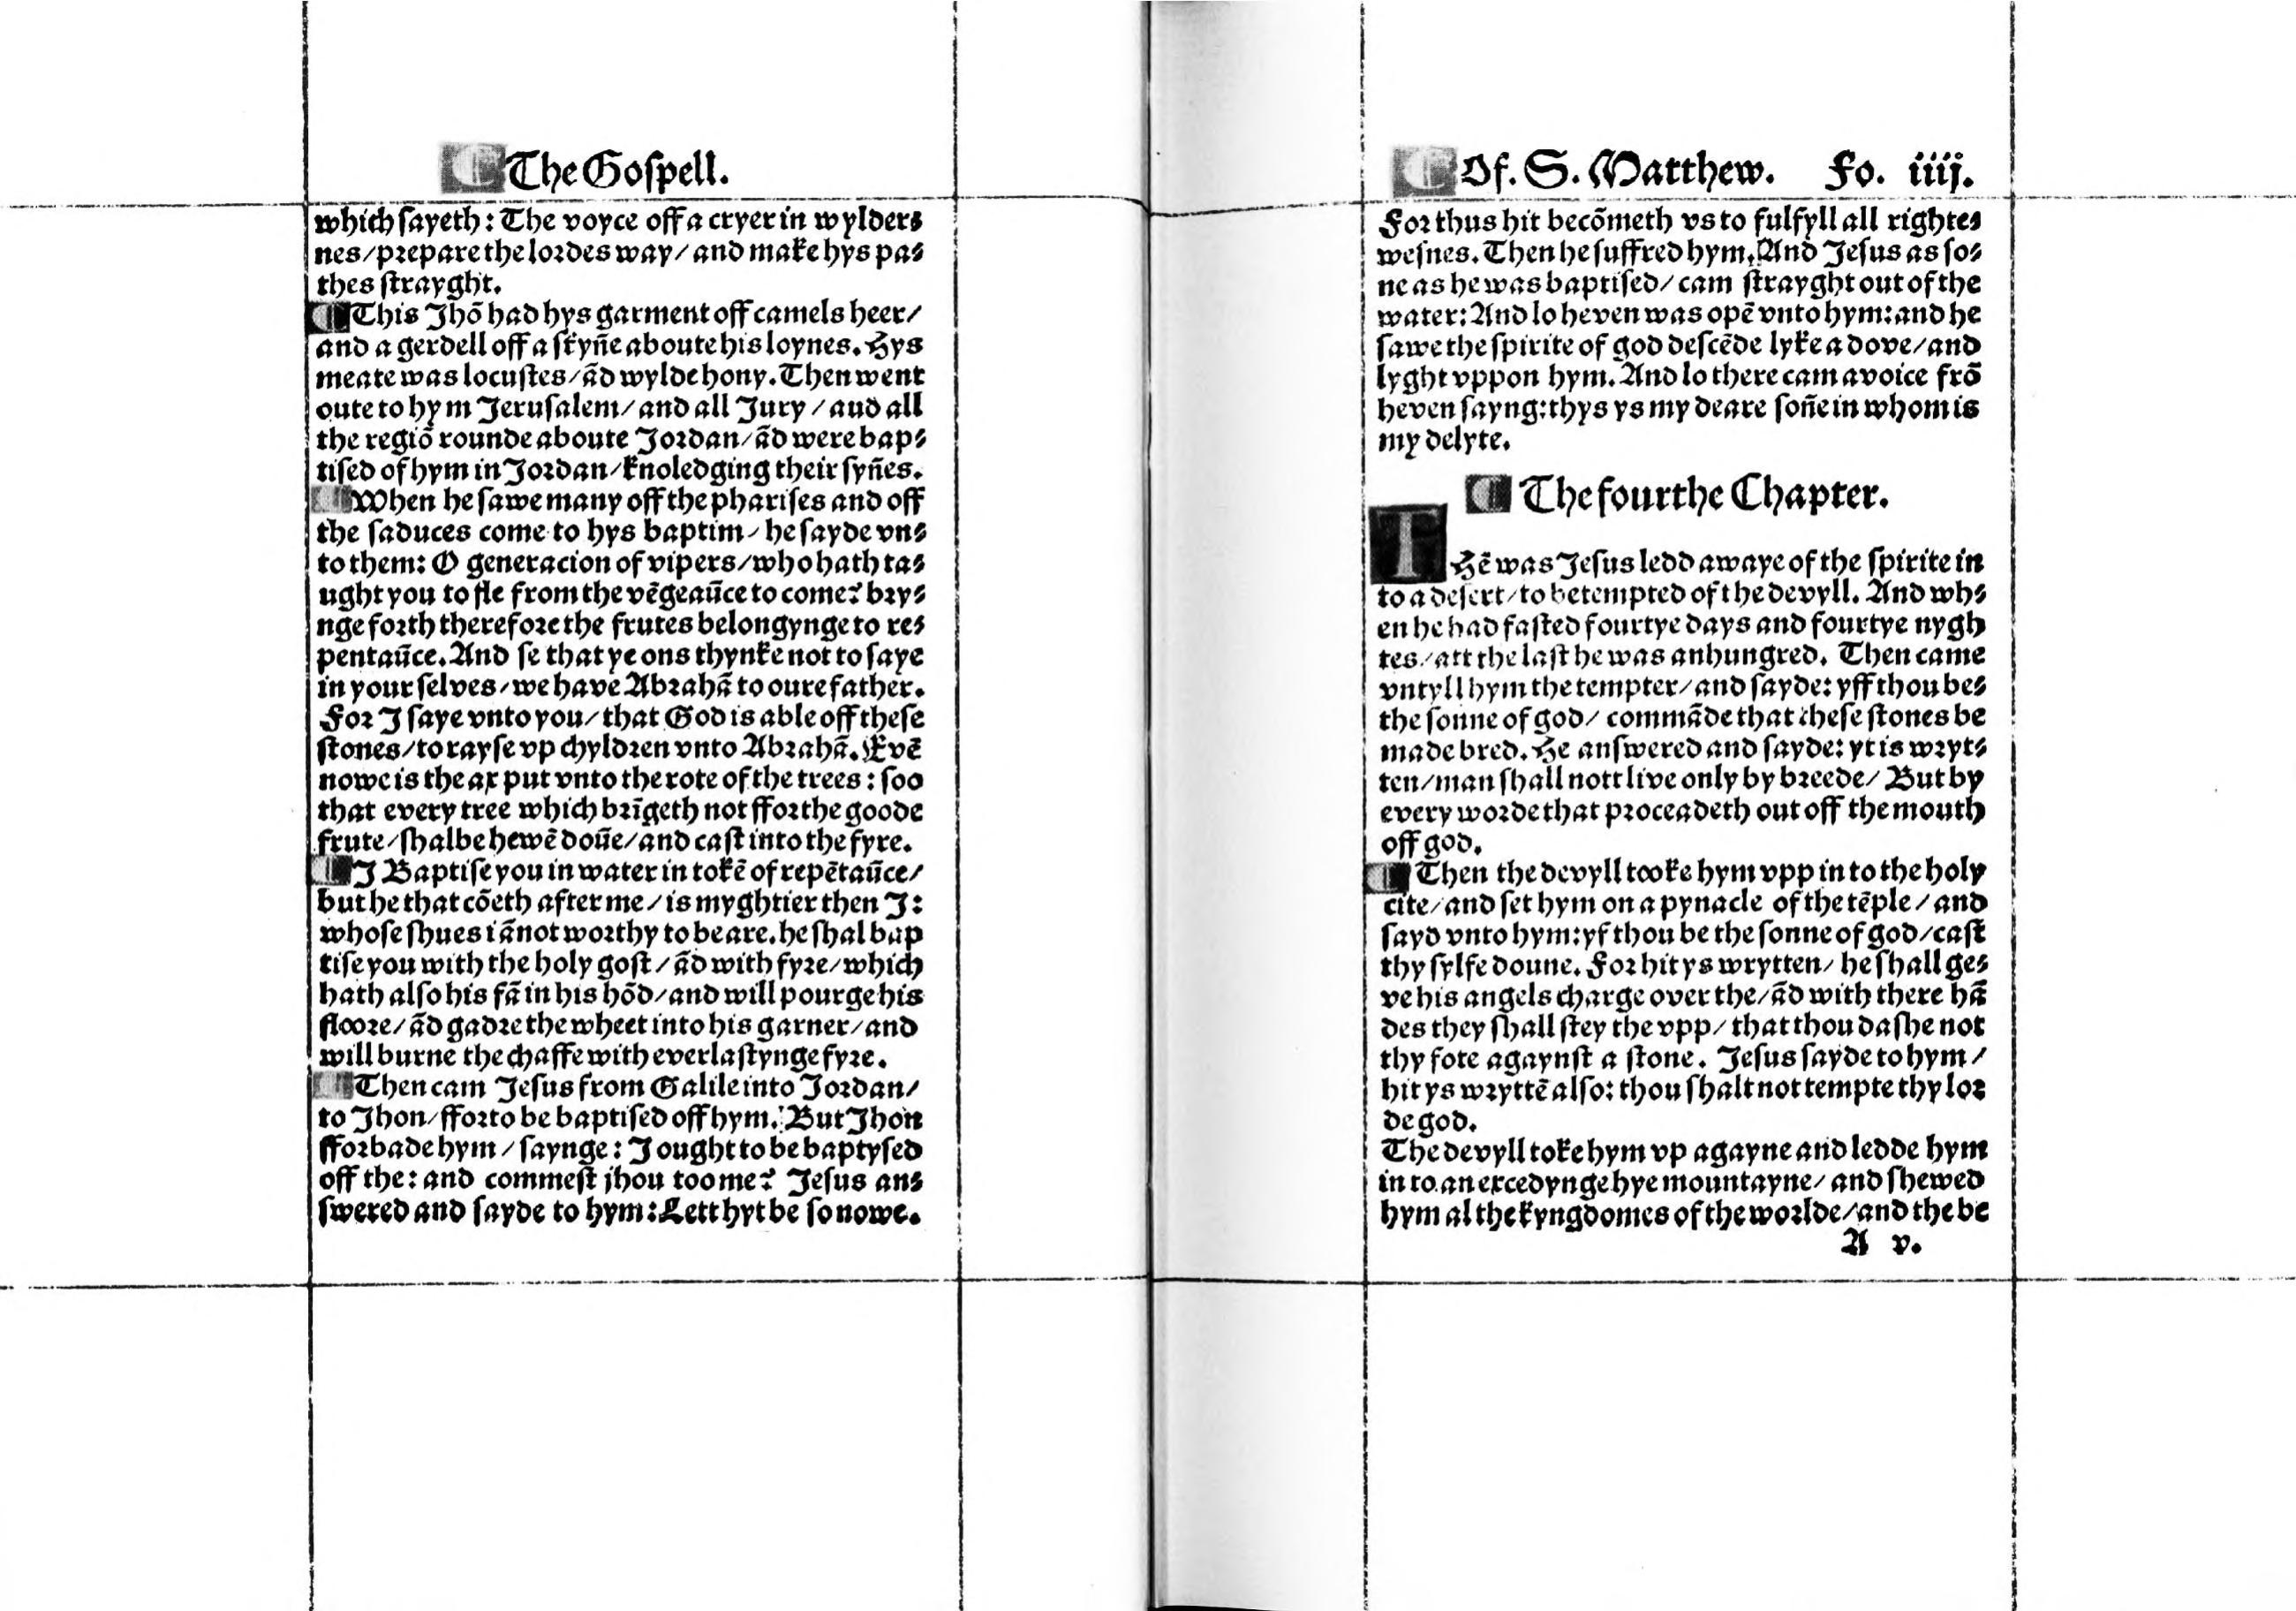 The Goſpell.
which ſayeth: The voyce off a cryer in wylder⸗
nes/prepare the lordes way/ and make hys pa⸗
thes ſtrayght.
This Jhõ had hys garment off camels heer/
and a gerdell off a ſkyñe aboute his loynes. Hys
meate was locuſtes/ ãd wylde hony. Then went
oute to hym Jeruſalem/ and all Jury / aud all
the regiõ rounde aboute Jordan/ ãd were bap⸗
tiſed of hym in Jordan/ knoledging their ſyñes.
When he ſawe many off the phariſes and off
the ſaduces come to hys baptim/ he ſayde vn⸗
to them: O generacion of vipers/ who hath ta⸗
ught you to fle from the vẽgeaũce to come? bry⸗
nge forth therefore the frutes belongynge to re⸗
pentaũce. And ſe that ye ons thynke not to ſaye
in your ſelves/ we have Abrahã to oure father.
For J ſaye vnto you/ that God is able off theſe
ſtones/ to rayſe vp chyldren vnto Abrahã. Evẽ
nowe is the ax put vnto the rote of the trees: ſoo
that every tree which brĩgeth not fforthe goode
frute/ ſhalbe hewẽ doũe/ and caſt into the fyre.
J Baptiſe you in water in tokẽ of repẽtaũce/
but he that cõeth after me/ is myghtier then J:
whoſe ſhues i ãnot worthy to beare. he ſhal bap
tiſe you with the holy goſt/ ãd with fyre/ which
hath alſo his fã in his hõd/ and will pourge his
floore/ ãd gadre the wheet into his garner/ and
will burne the chaffe with everlaſtynge fyre.
Then cam Jeſus from Galile into Jordan/
to Jhon/ fforto be baptiſed off hym. But Jhon
fforbade hym/ ſaynge: J ought to be baptyſed
off the: and commeſt jhou too me? Jeſus an⸗
ſwered and ſayde to hym: Lett hyt be ſo nowe.
Of. S. Matthew. Fo. iiij.
For thus hit becõmeth vs to fulfyll all righte⸗
weſnes. Then he ſuffred hym. And Jeſus as ſo⸗
ne as he was baptiſed/ cam ſtrayght out of the
water: And lo heven was opẽ vnto hym: and he
ſawe the ſpirite of god deſcẽde lyke a dove/ and
lyght vppon hym. And lo there cam a voice frõ
heven ſayng: thys ys my deare ſoñe in whom is
my delyte.
The fourthe Chapter.
THẽ was Jeſus ledd awaye of the ſpirite in
to a deſert/ to be tempted of the devyll. And wh⸗
en he had faſted fourtye days and fourtye nygh
tes/ att the laſt he was anhungred. Then came
vntyll hym the tempter/ and ſayde: yff thou be⸗
the ſonne of god/ commãde that theſe ſtones be
made bred. He anſwered and ſayde: yt is wryt⸗
ten/ man ſhall nott live only by breede/ But by
every worde that proceadeth out off the mouth
off god.
Then the devyll tooke hym vpp in to the holy
cite/ and ſet hym on a pynacle of the tẽple/ and
ſayd vnto hym: yf thou be the ſonne of god/ caſt
thy ſylfe doune. For hit ys wrytten/ he ſhall ge⸗
ve his angels charge over the/ ãd with there hã
des they ſhall ſtey the vpp/ that thou daſhe not
thy fote agaynſt a ſtone. Jeſus ſayde to hym/
hit ys wryttẽ alſo: thou ſhalt not tempte thy lor
de god.
The devyll toke hym vp agayne and ledde hym
in to an excedynge hye mountayne/ and ſhewed
hym al the kyngdomes of the worlde/ and the be
A v.